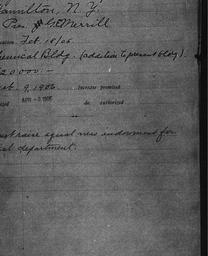 Hamilton, N. Y.
Pres. G. E. Merrill
Feb. 15/06
Chemical Bldg. (addition to present bldg).
20000.–
9, 1906. Increase promised
APR 1906 do authorized
raise equal new endowment for
department.